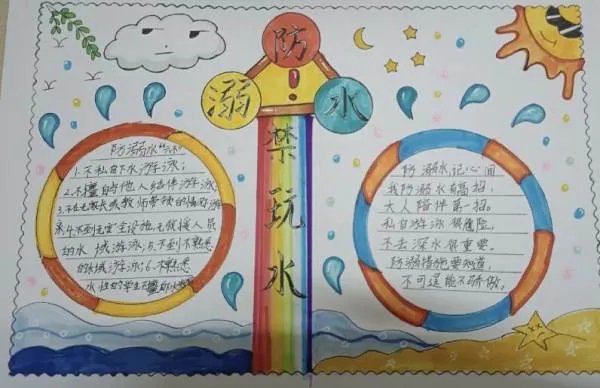 防
溺
水
禁
玩
水
防溺水"六不"
1.不私自下水游泳;
2.不擅自与他人结伴游泳
3.不在无家长或教师带领的情况游
泳4.不到无安全设施,无救援人员
的水域游泳;5.不到不熟悉
的水域游泳;6.不熟悉
水性的学生不擅自下水
防溺水记心间
我防溺水有高招,
大人陪伴第一招。
私自游泳很危险,
不去深水很重要。
防溺措施要知道,
不可逞能不骄傲。